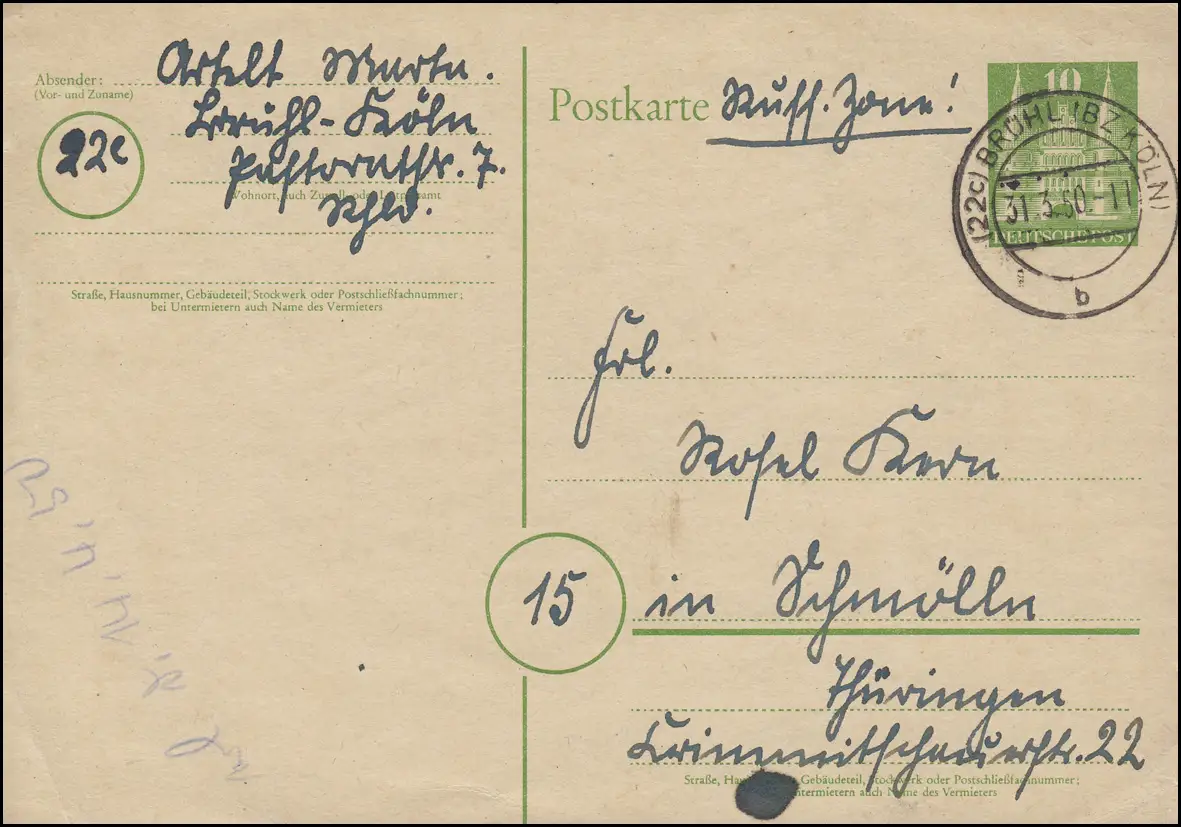 Absender: Artelt Marta.
(Vor- und Zuname)
Brühl-Köln
22c
Pastoratstr. 7.
Wohnort, auch Zustell- oder Leitpostamt
Rhld.
Straße, Hausnummer, Gebäudeteil, Stockwerk oder Postschließfachnummer;
bei Untermietern auch Name des Vermieters
Postkarte Russ. Zone!
10
DEUTSCHE POST
(22c) BRÜHL (BZ KÖLN)
31.3.50.-11
b
Frl.
Rosel Kern
15
in Schmölln
Thüringen
Crimmitschauerstr. 22
Straße, Hausnummer, Gebäudeteil, Stockwerk oder Postschließfachnummer;
bei Untermietern auch Name des Vermieters